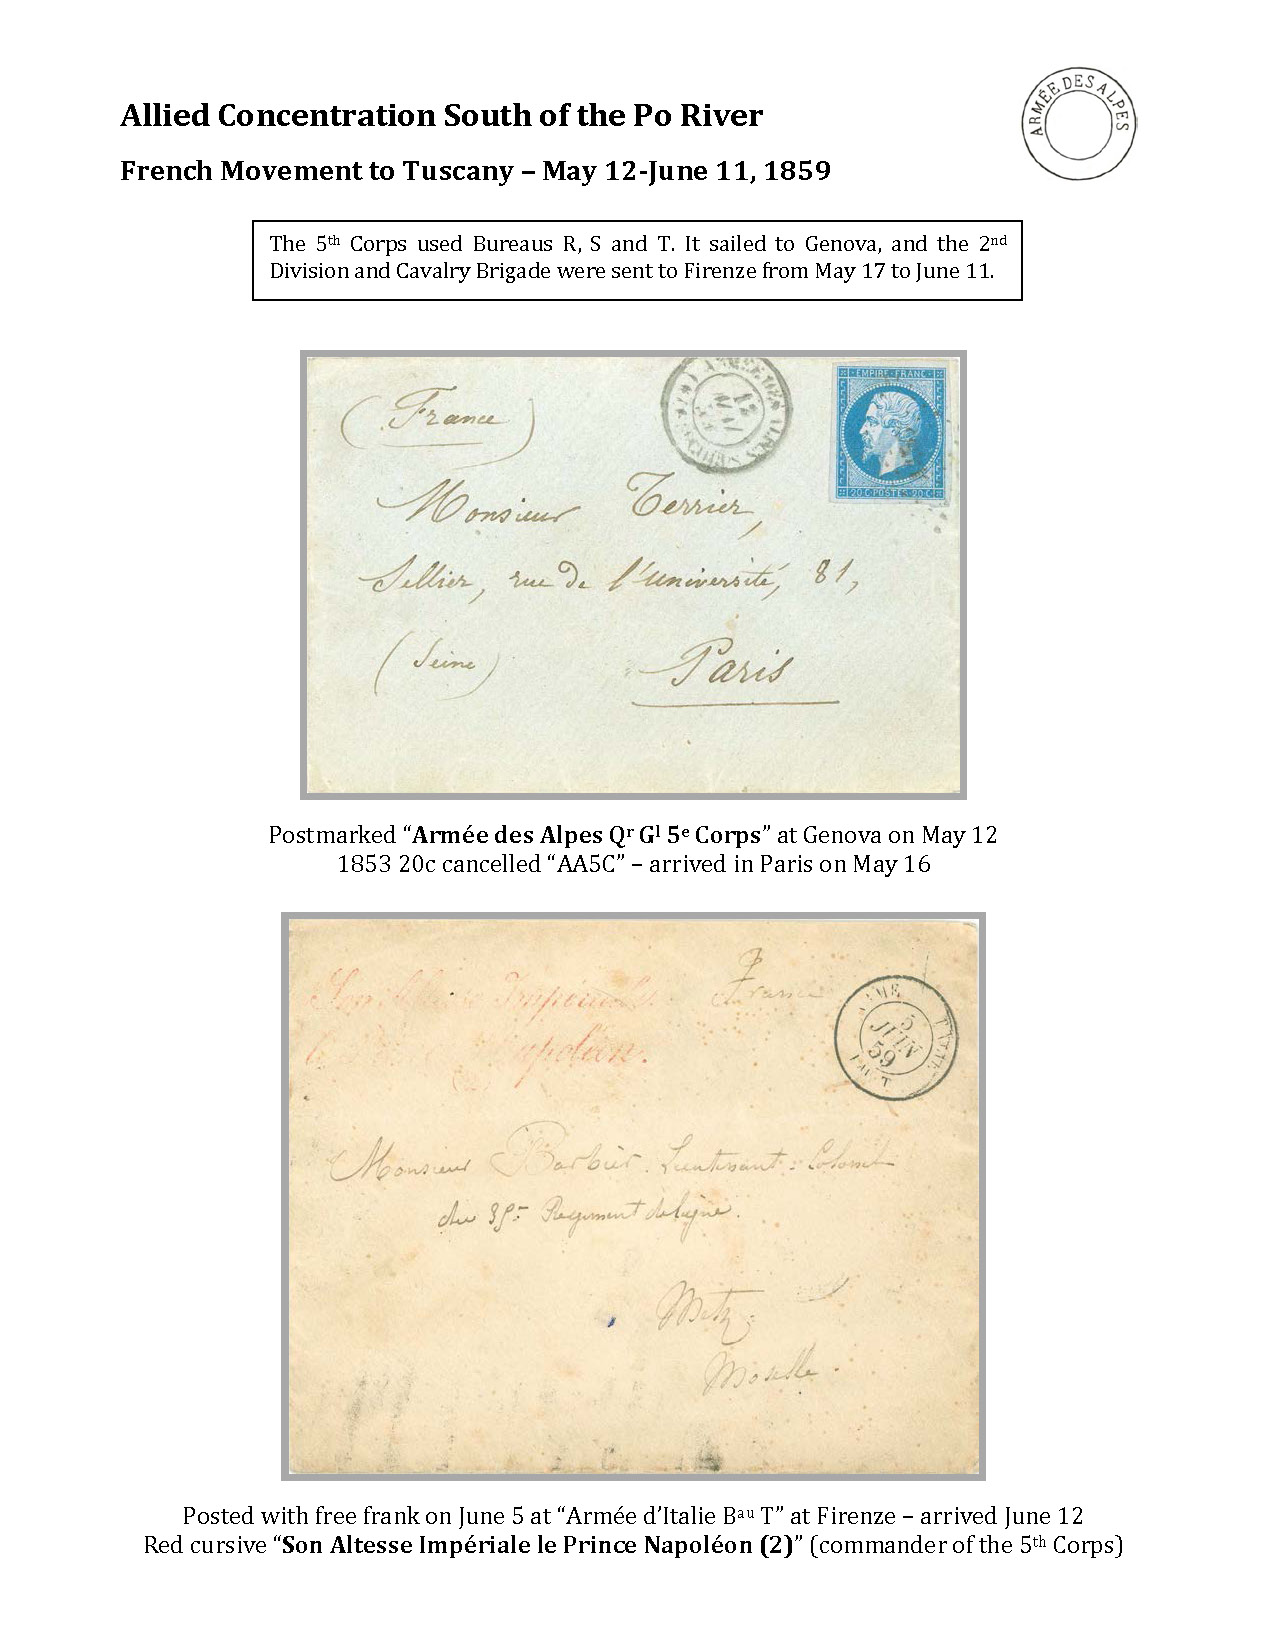 Allied Concentration South of the Po River
ARMÉE DES ALPES
French Movement to Tuscany – May 12-June 11, 1859
The 5th Corps used Bureaus R, S and T. It sailed to Genova, and the 2nd
Division and Cavalry Brigade were sent to Firenze from May 17 to June 11.
(France)
12 MAI
EMPIRE FRANC
20 C POSTES 20 C
Monsieur Terrier,
Sellier, rue de l'université, 81,
(Seine) Paris
Postmarked “Armée des Alpes Qr Gl 5e Corps” at Genova on May 12
1853 20c cancelled “AA5C” – arrived in Paris on May 16
Son Impériale
France
le Napoléon.
5
JUIN
59
Monsieur Barbier. Lieutenant-Colonel
du Regiment de ligne.
Metz
Moselle.
Posted with free frank on June 5 at “Armée d’Italie Bau T” at Firenze – arrived June 12
Red cursive “Son Altesse Impériale le Prince Napoléon (2)” (commander of the 5th Corps)